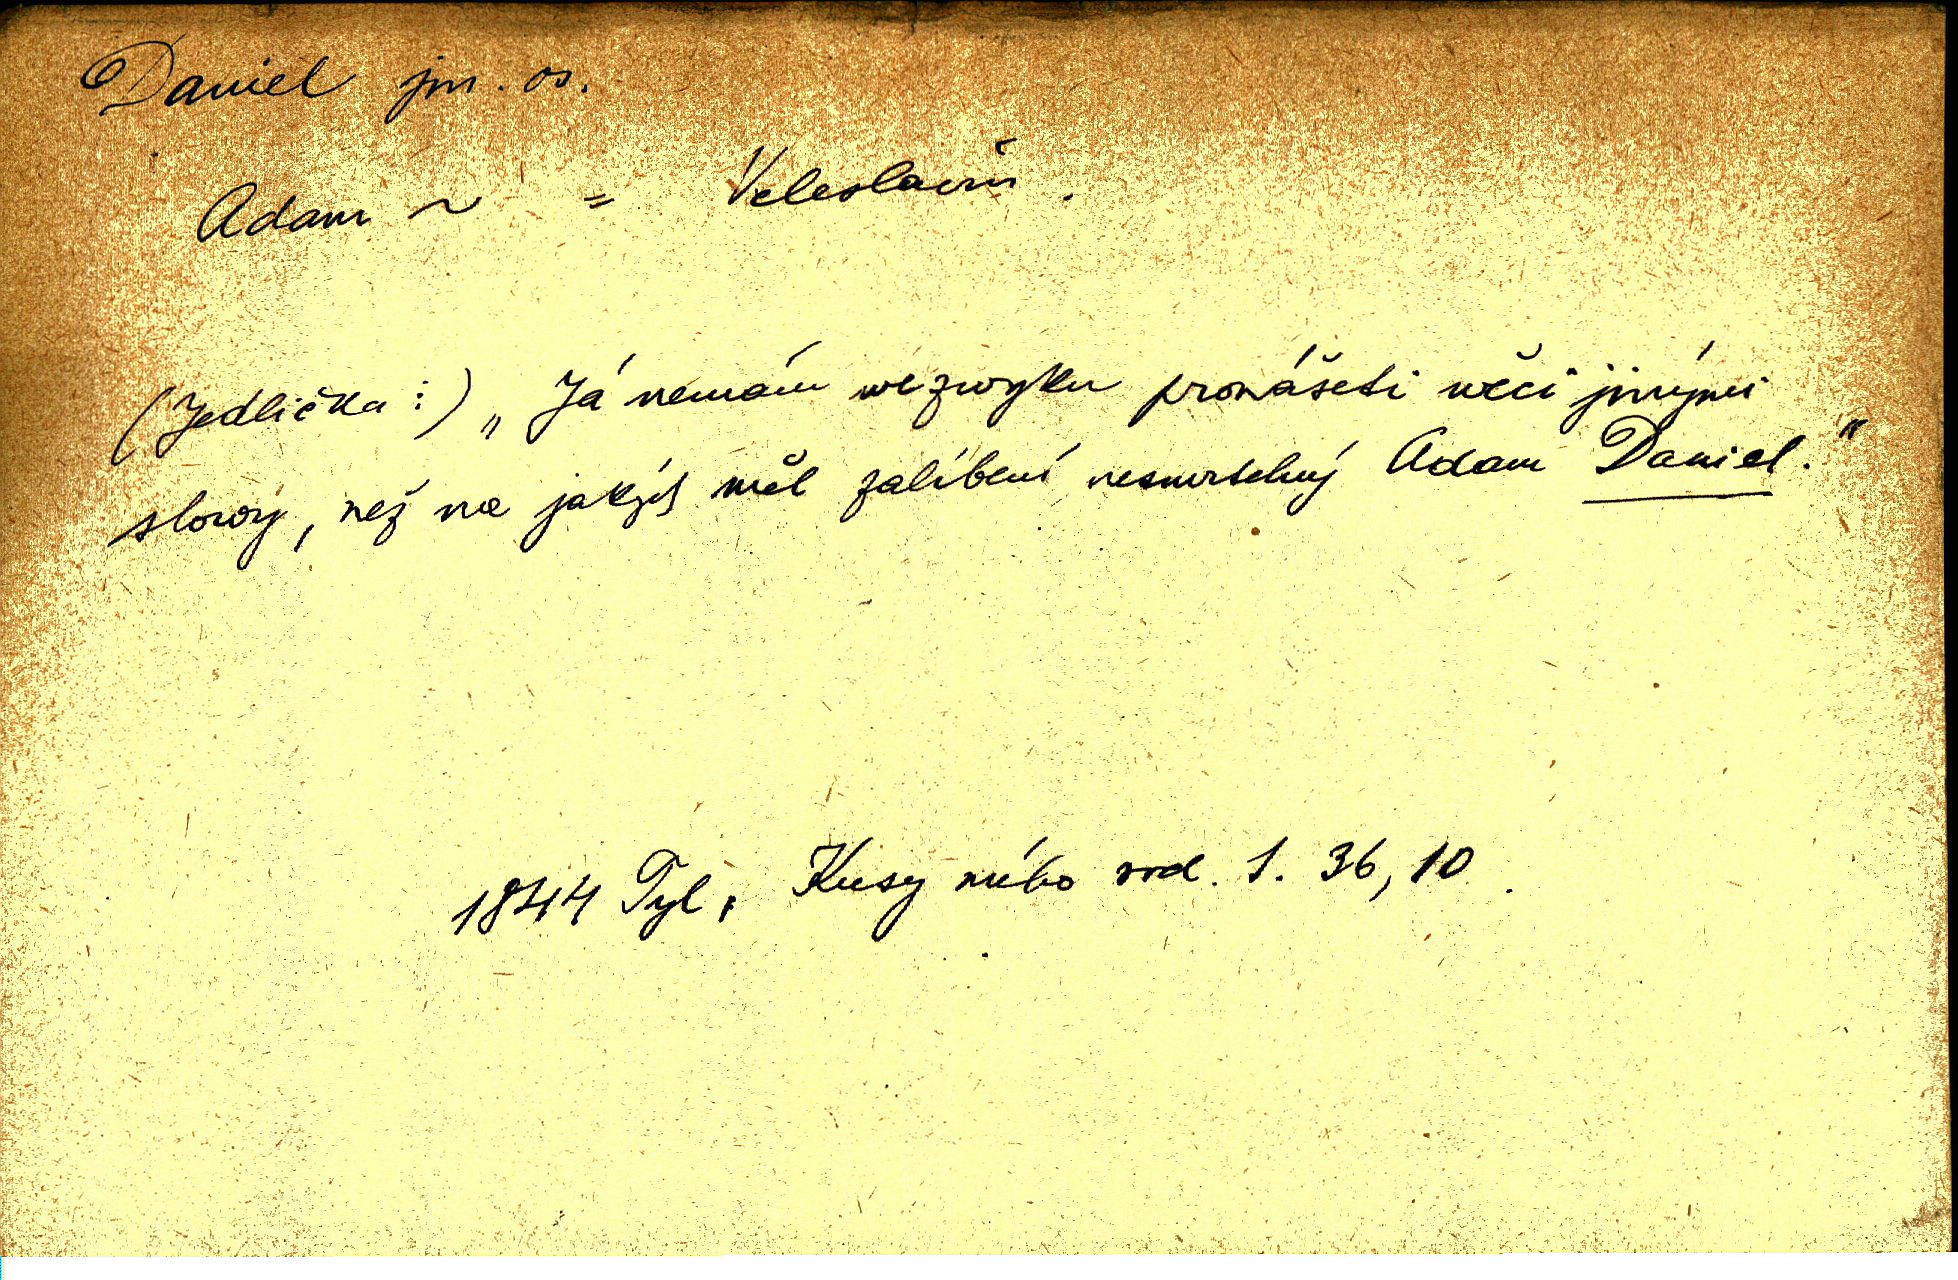 Daniel jm. os.
Adam ~ = Veleslavín.
(Jedlička:) „Já nemám we zwyku pronášeti wěci jinými
slowy, než na jakýs měl zalíbení nesmrtelný Adam Daniel."
1844 Tyl, Kusy mého srd. 1. 36, 10.